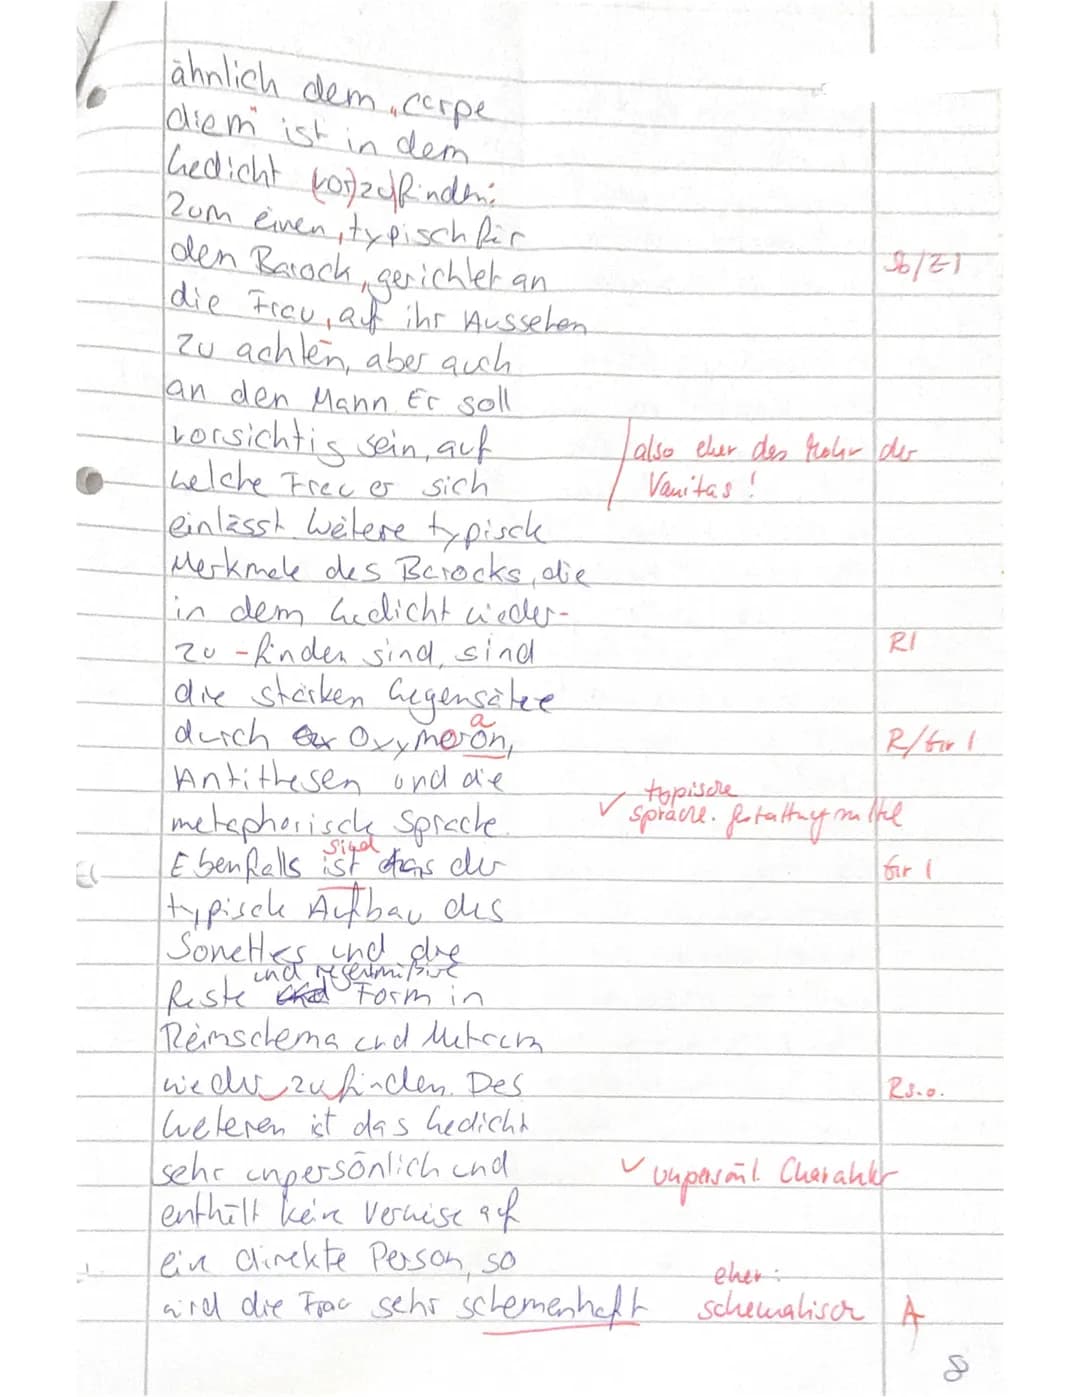 ähnlich dem „carpe
diem" ist in dem
Gedicht (vor)zufinden:
Zum einen, typisch für
den Barock, gerichtet an
die Frau, auf ihr Aussehen
zu achten, aber auch
an den Mann. Er soll
vorsichtig sein, auf
also eher das der
welche Frau er sich
Vanitas!
einlässt. Weitere typische
Merkmale des Barocks, die
in dem Gedicht wieder-
zu-finden sind, sind
R I
die starken Gegensätze
durch Oxymoron,
a
R/Gr I
Antithesen und die
metaphorische Sprache.
✓ typische
sprachl. Gestaltungsmittel
Ebenfalls ist der
sind
Gr I
typische Aufbau des
Sonettes und die
feste und Form in
Reimschema und Metrum
wieder zu finden. Des
R s.o.
Weiteren ist das Gedicht
sehr unpersönlich und
✓ unpersönl. Charakter
enthält keine Verweise auf
eine direkte Person, so
wird die Frau sehr schemenhaft
eher:
schematisch
A
8